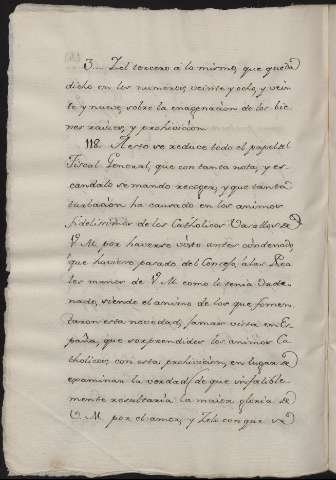 3. Y el tercero a lo mismo, que queda
dicho en los numeros veinte y ocho, y vein
te y nueve, sobre la enagenacion de los bie
nes raices, y prohivicion.
118. A esto se reduce todo el papel del
Fiscal General, que con tanta nota, y es
candalo se mando recoger, y que tanta
turbacion ha causado en los animos
fidelissimos de los Catholicos Vasallos de
V. M. por haverse visto antes condenado,
que huviese pasado del Consejo á las Rea
les manos de V. M. como lo tenia orde
nado, siendo el animo de los que fomen
taron esta novedad, jamas vista en Es
paña, que sorprendidos los animos Ca
tholicos con esta prohivicion, en lugar de
examinar la verdad, (de que infalible
mente resultaria la maior gloria de
V. M. por el amor, y zelo con que va